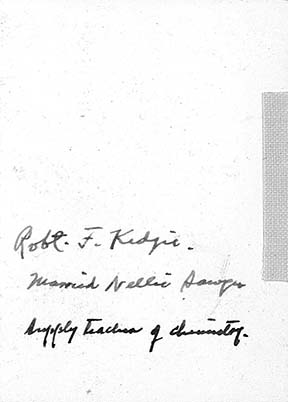 Robt. F. Kedzie.
Married Nellie Sawyer
Supply teacher of chemistry.